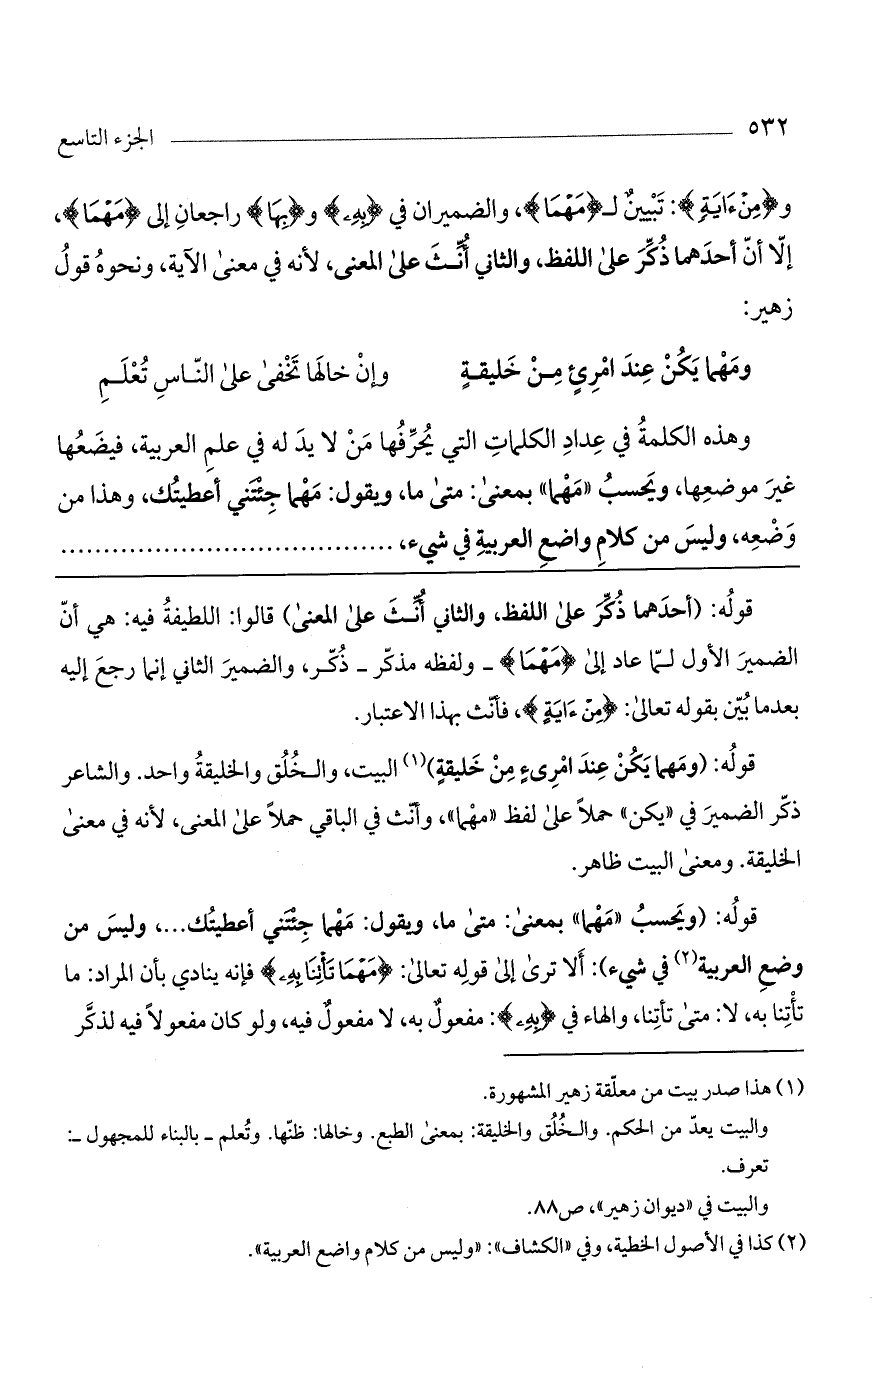 ٥٣٢ الجزء التاسع
و﴿مِنْ ءَايَةٍ﴾: تَبْيينٌ لـ﴿مَهْمَا﴾، والضميران في ﴿بِهِۦ﴾ و﴿بِهَا﴾ راجعانِ إلى ﴿مَهْمَا﴾،
إلّا أنّ أحدَهما ذُكِّرَ علىٰ اللفظ، والثاني أُنِّـثَ علىٰ المعنى، لأنه في معنىٰ الآية، ونحوهُ قولُ
زهير:
ومَهْما يَكُنْ عِندَ امْرِئٍ مِـنْ خَليقـةٍ وإنْ خالهَا تَخْفىٰ علىٰ النّـاسِ تُعْلَـمِ
وهذه الكلمةُ في عِدادِ الكلماتِ التي يُحرِّفُها مَنْ لا يدَ له في علمِ العربية، فيضَعُها
غيرَ موضعِها، ويَحسبُ «مَهْما» بمعنىٰ: متىٰ ما، ويقول: مَهْما جِئْتَني أعطيتُك، وهذا من
وَضْعِه، وليسَ من كلامِ واضعِ العربيةِ في شيء، .......................................
قولُه: (أحدَهما ذُكِّرَ علىٰ اللفظ، والثاني أُنِّـثَ علىٰ المعنىٰ) قالوا: اللطيفةُ فيه: هي أنّ
الضميرَ الأول لـمّا عاد إلىٰ ﴿مَهْمَا﴾ ـ ولفظه مذكّر ـ ذُكِّـر، والضميرَ الثاني إنما رجعَ إليه
بعدما بُيّن بقوله تعالىٰ: ﴿مِنْ ءَايَةٍ﴾، فأنّث بهذا الاعتبار.
قولُه: (ومَهما يَكُنْ عِندَ امْرِىءٍ مِنْ خَليقةٍ)(١) البيت، والـخُلُق والخليقةُ واحد. والشاعر
ذكّر الضميرَ في «يكن» حملاً علىٰ لفظ «مهْما»، وأنّث في الباقي حملاً علىٰ المعنى، لأنه في معنىٰ
الخليقة. ومعنىٰ البيت ظاهر.
قولُه: (ويَحسبُ «مَهْما» بمعنىٰ: متىٰ ما، ويقول: مَهْما جِئْتَني أعطيتُك...، وليسَ من
وضعِ العربية(٢) في شيء): أَلا ترىٰ إلىٰ قولِه تعالىٰ: ﴿مَهْمَا تَأْتِنَا بِهِۦ﴾ فإنه ينادي بأن المراد: ما
تأْتِنا به، لا: متىٰ تأتِنا، والهاء في ﴿بِهِۦ﴾: مفعولٌ به، لا مفعولٌ فيه، ولو كان مفعولاً فيه لذكَّر
(١) هذا صدر بيت من معلّقة زهير المشهورة.
والبيت يعدّ من الحكم. والـخُلُق والخليقة: بمعنىٰ الطبع. وخالها: ظنّها. وتُعلم ـ بالبناء للمجهول ـ:
تعرف.
والبيت في «ديوان زهير»، ص٨٨.
(٢) كذا في الأصول الخطية، وفي «الكشاف»: «وليس من كلام واضع العربية».